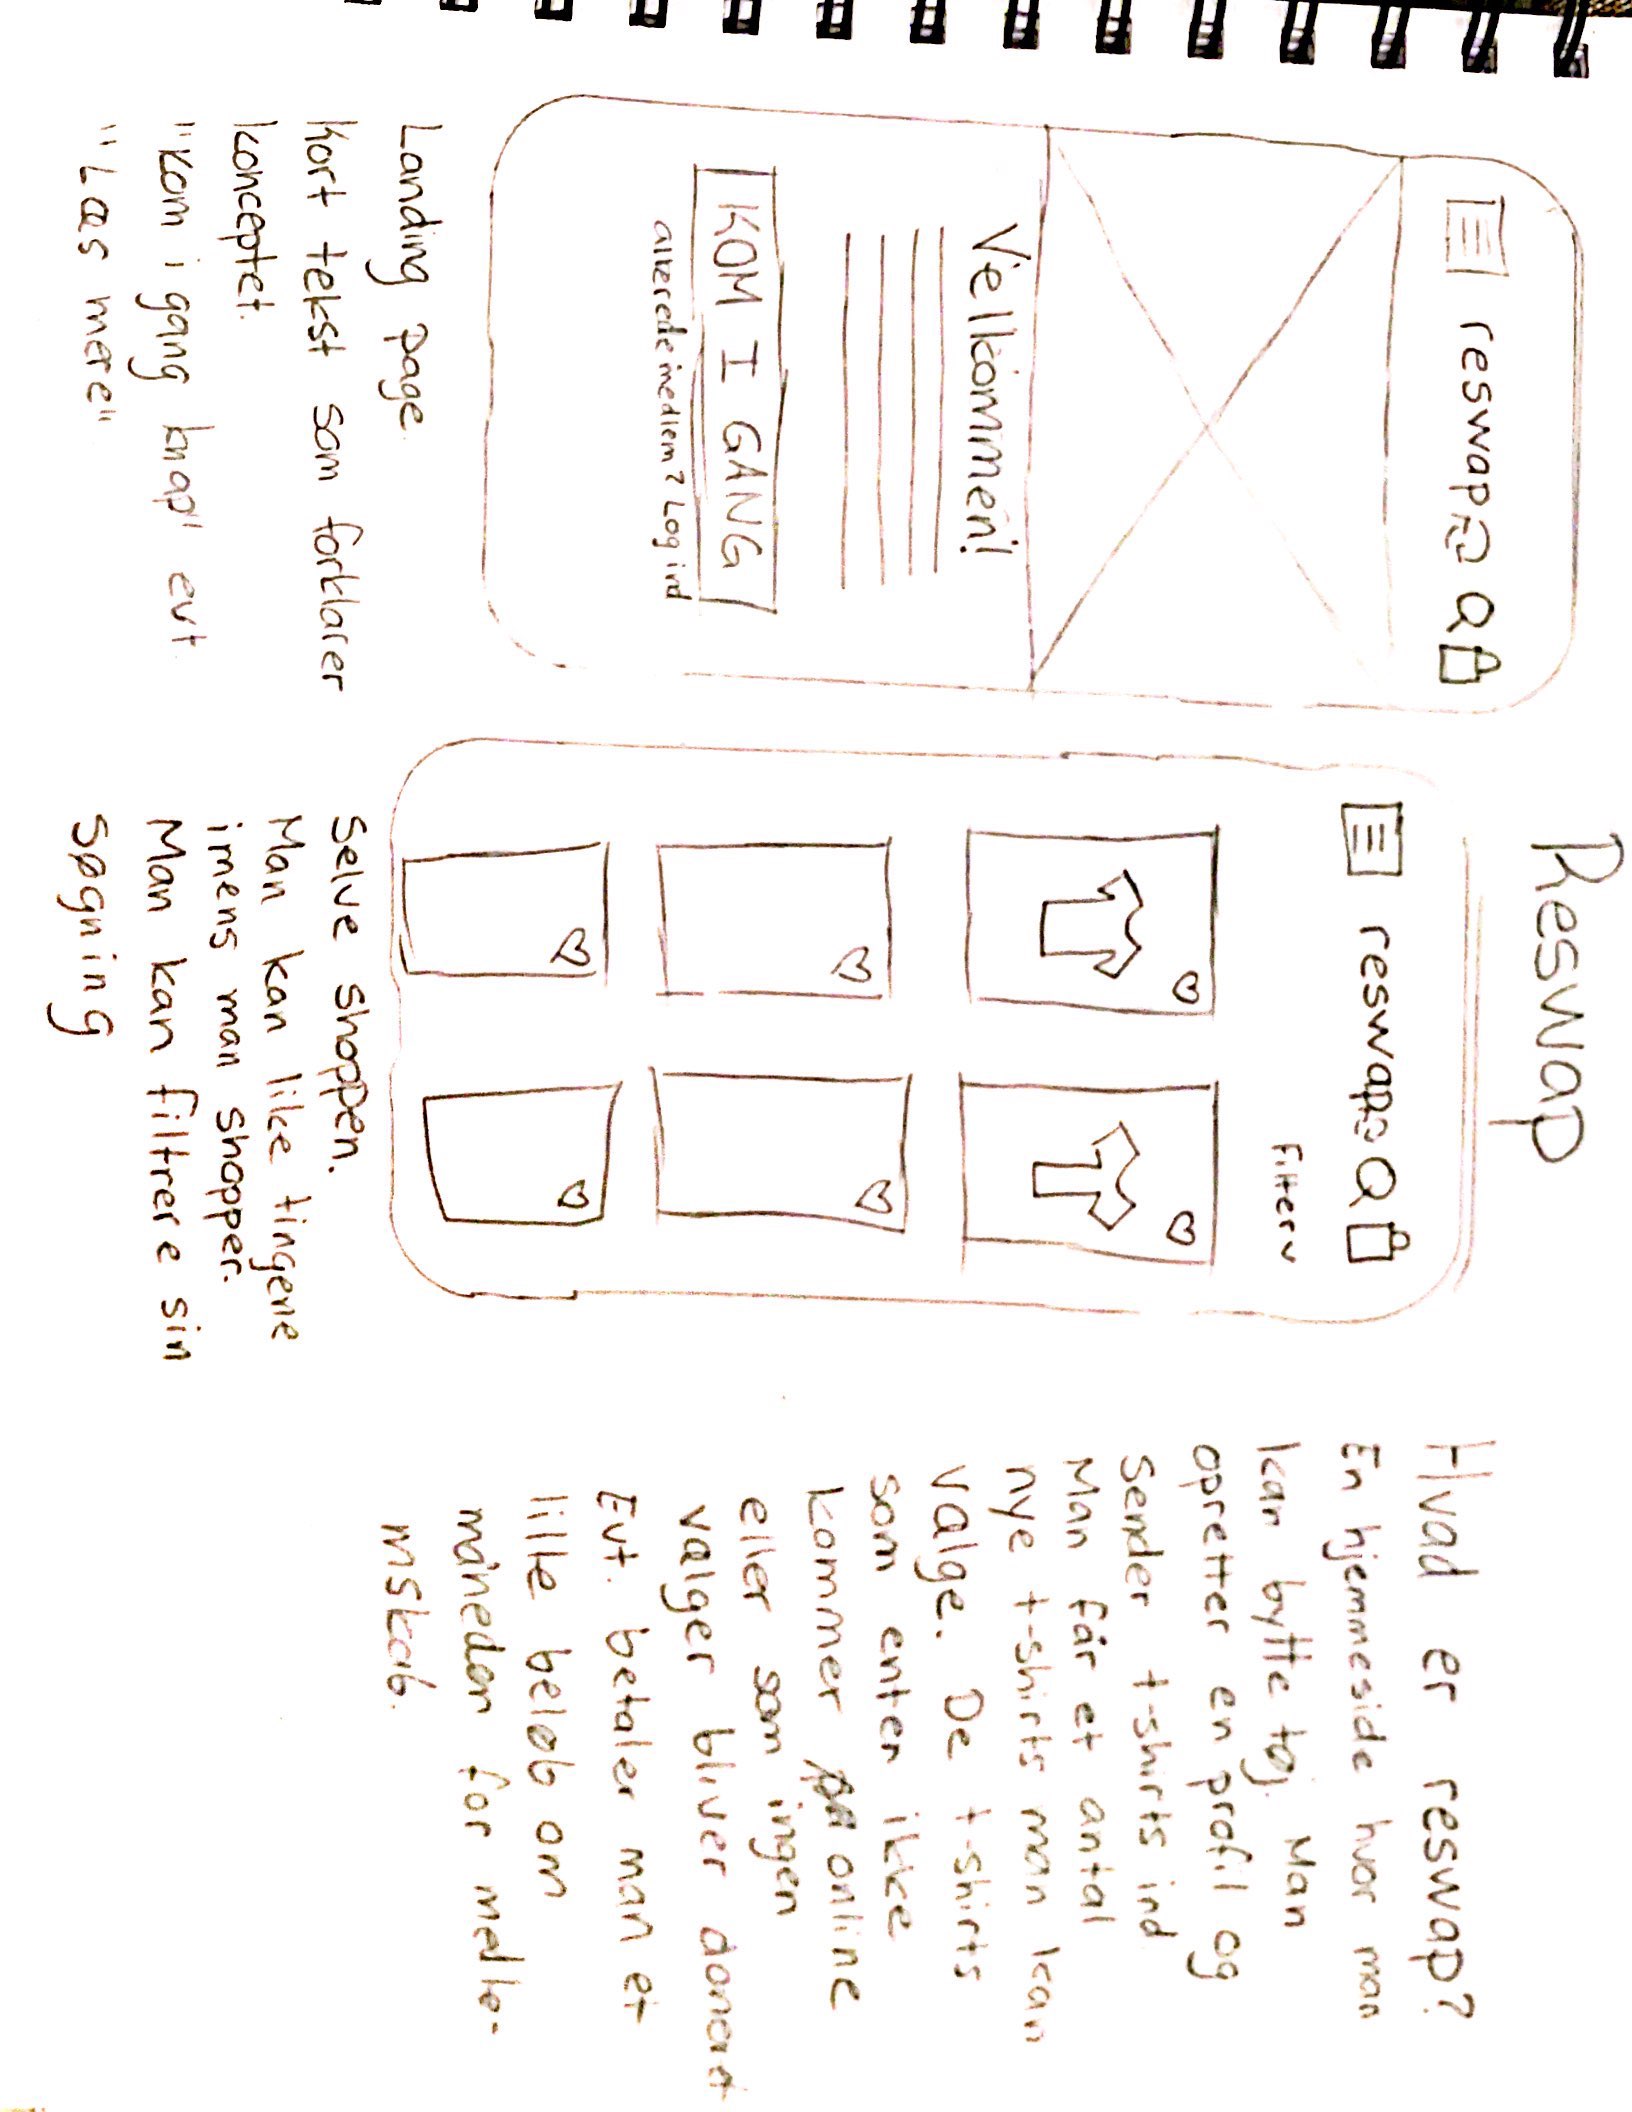 Reswap
reswap
Velkommen!
KOM I GANG
allerede medlem? Log ind
Landing page
Kort tekst som forklarer
konceptet.
"Kom i gang knap" evt.
"Læs mere"
reswap
Filter v
Selve shoppen.
Man kan like tingene
imens man shopper.
Man kan filtrere sin
søgning
Hvad er reswap?
En hjemmeside hvor man
kan bytte tøj. Man
opretter en profil og
sender t-shirts ind
Man får et antal
nye t-shirts man kan
vælge. De t-shirts
som enten ikke
kommer online
eller som ingen
vælger bliver doneret
Evt. betaler man et
lille beløb om
måneden for medle-
mskab.